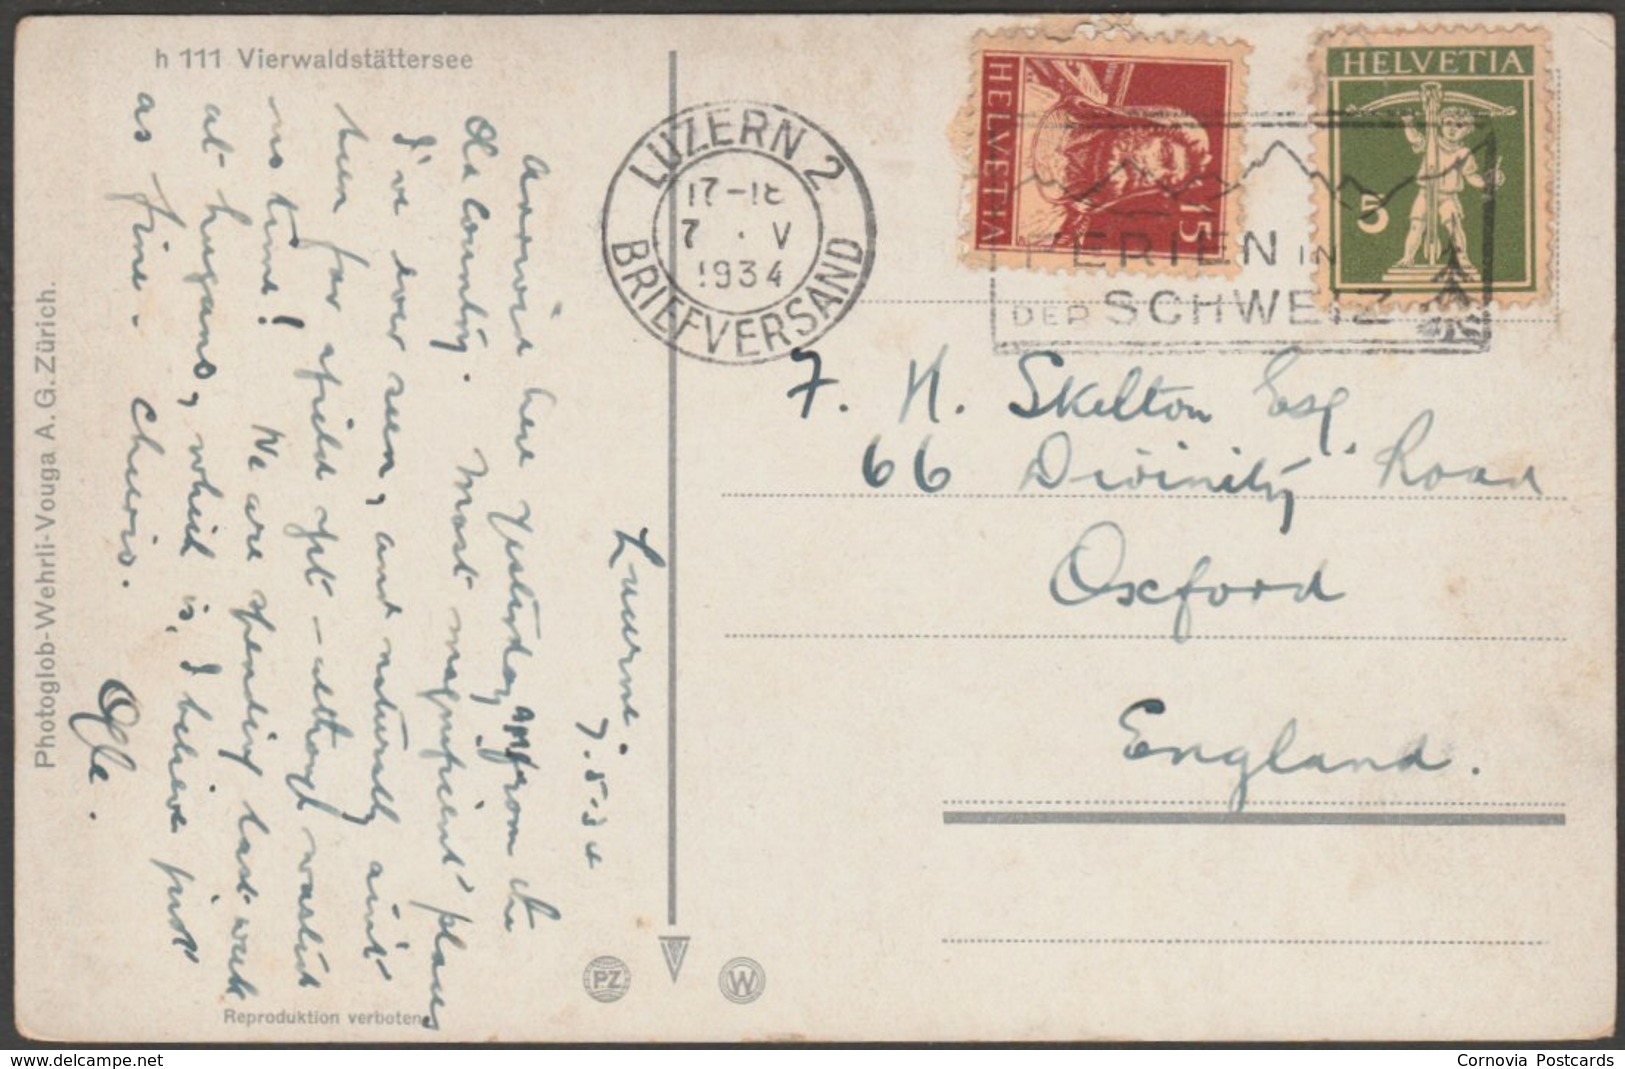 h 111 Vierwaldstättersee
Lucerne.
7.5.34
Arrived here yesterday from the
Old Country. Most magnificent place
I've ever seen, and naturally ain't
been far afield yet – although wasted
no time! We are spending last week
at Lugano, which is, I believe just
as fine. Cheerio.
Ogle.
Photoglob-Wehrli-Vouga A.G. Zürich.
Reproduktion verboten
PZ
W
LUZERN 2
17-18
7 . V
1934
BRIEFVERSAND
HELVETIA
15
HELVETIA
5
FERIEN IN
DER SCHWEIZ
F. H. Skelton Esq.
66 Divinity Road
Oxford
England.
Cornovia Postcards
www.delcampe.net